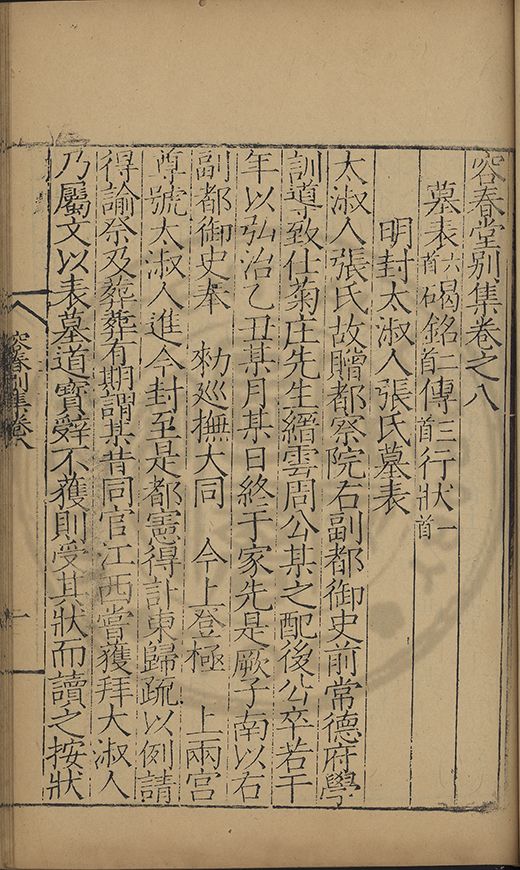 容春堂別集卷之八
墓表六首 碣銘二首 傳三首 行狀一首
明封太淑人張氏墓表
太淑人張氏故贈都察院右副都御史前常德府學
訓導致仕菊庄先生縉雲周公某之配後公卒若干
年以弘治乙丑某月某日終于家先是厥子南以右
副都御史奉 勑廵撫大同 今上登極 上兩宮
尊號太淑人進今封至是都憲得訃東歸疏以例請
得諭祭及葬葬有期謂某昔同官江西嘗獲拜大淑人
乃屬文以表墓道寶辤不獲則受其狀而讀之按狀
容春別集卷八
一